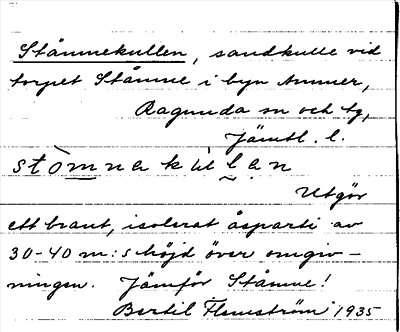 Stämnekullen, sandkulle vid
torpet Stämne i byn Ammer,
Ragunda sn och tg,
Jämtl. l.
stòmnakùl̬an
Utgör
ett brant, isolerat åsparti av
30-40 m:s höjd över omgiv-
ningen. Jämför Stämne!
Bertil Flemström 1935